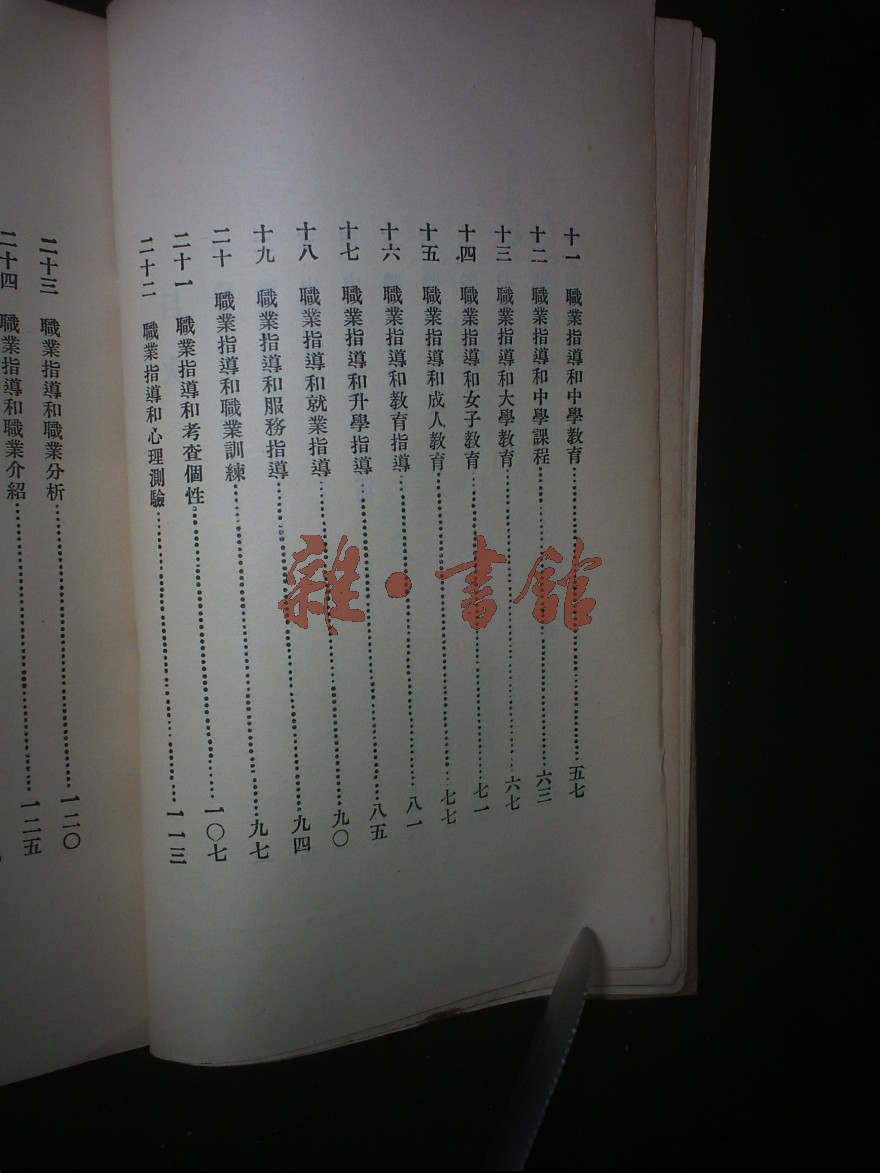 十一　職業指導和中學教育……五七
十二　職業指導和中學課程……六三
十三　職業指導和大學教育……六七
十四　職業指導和女子教育……七一
十五　職業指導和成人教育……七七
十六　職業指導和教育指導……八一
十七　職業指導和升學指導……八五
十八　職業指導和就業指導……九〇
十九　職業指導和服務指導……九四
二十　職業指導和職業訓練……九七
二十一　職業指導和考查個性……一〇七
二十二　職業指導和心理測驗……一一三
二十三　職業指導和職業分析……一二〇
二十四　職業指導和職業介紹……一二五
雜·書館